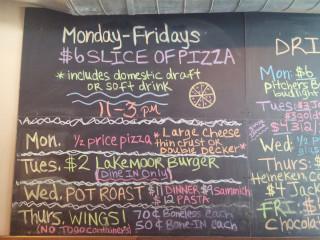 Monday-Fridays
$6 SLICE OF PIZZA
*includes domestic draft
OR soft drink
11-3 pm
Mon. ½ price pizza *Large Cheese
thin crust or
Double Decker*
Tues. $2 Lakemoor Burger
(Dine In Only)
Wed. POT ROAST $11 DINNER $9 Sammich
$12 PASTA
Thurs. WINGS! 70¢ Boneless each
(NO TOGO Containers) 50¢ BONE-IN each
DRI
Mon: $6
Pitchers B
budlight
Tues: $3
$4
Wed: ½
Thurs: $
Heineken, Co
$4 Jack
FRI: $
Chocola